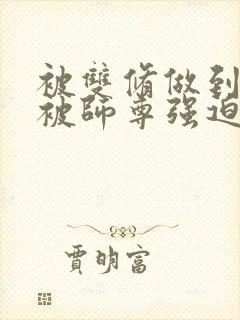 被雙脩做到
被師尊强迫
賈明富